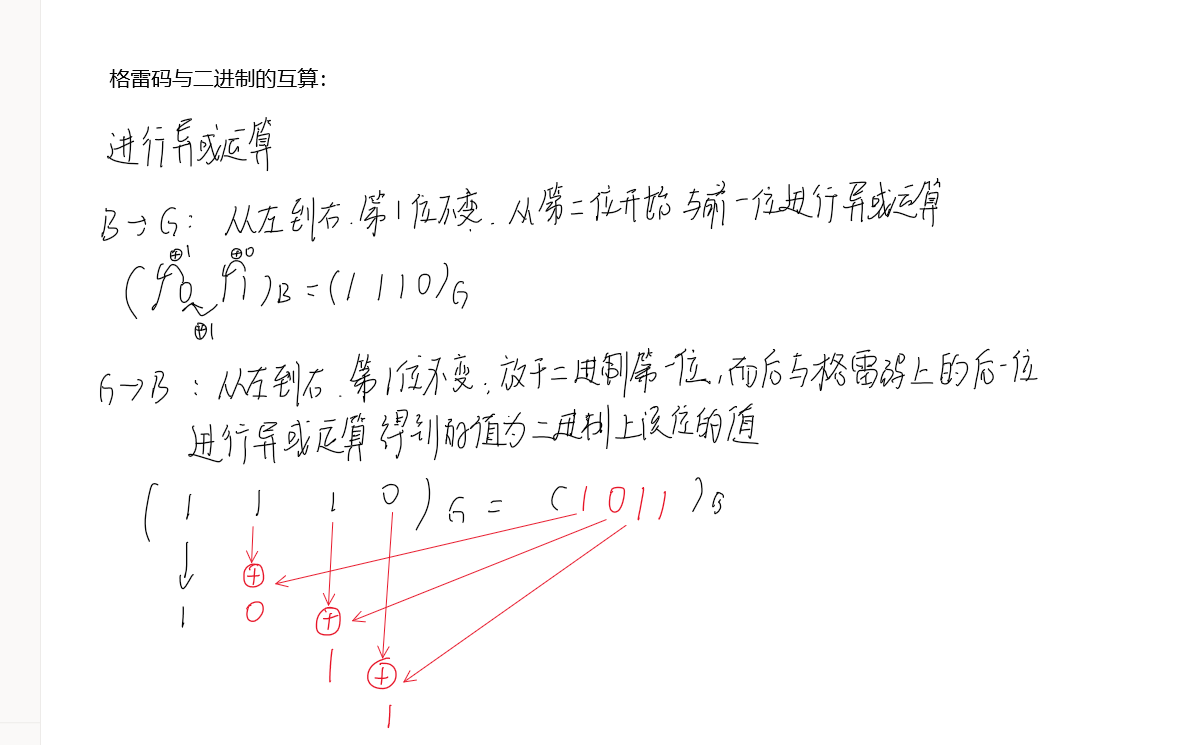 格雷码与二进制的互算:
进行异或运算
B→G: 从左到右.第1位不变.从第二位开始与前一位进行异或运算
⊕1 ⊕0
(1 0 1 1)B=(1 1 1 0)G
⊕1
G→B:从左到右.第1位不变,放于二进制第一位,而后与格雷码上的后一位
进行异或运算得到的值为二进制上该位的值
(1 1 1 0)G = (1011)B
⊕
1 0 ⊕
1 ⊕
1